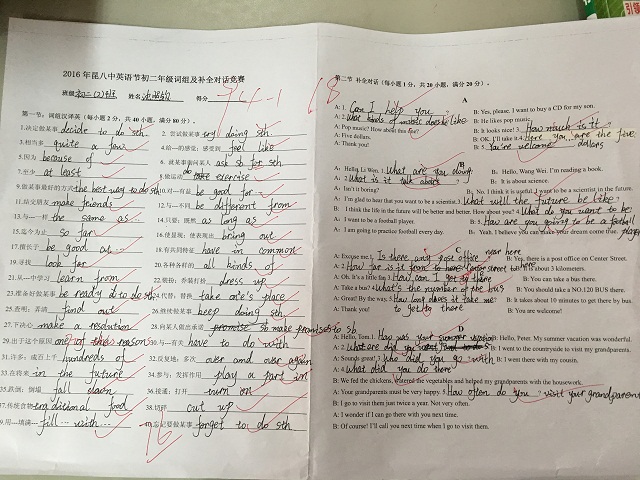 2016年昆八中英语节初二年级词组及补全对话竞赛
班级 初二(2)班 姓名 得分 94-1 68
第一节：词组汉译英（每小题2分，共40小题，满分80分）。
1.决定做某事 decide to do sth. 2.尝试做某事 try doing sth
3.相当多 quite a few 4.给…的感觉；感受到 feel like
5.因为 because of 6.就某事询问某人 ask sb for sth
7.至少 at least 8.做运动 do exercise
9.做某事最好的方式 the best way to do sth 10.对…有益 be good for
11.结交朋友 make friends 12.与…不同 be different from
13.与…一样 the same as… 14.只要；既然 as long as
15.迄今为止 so far 16.使显现；使表现出 bring out
17.擅长于 be good at… 18.有共同特征 have in common
19.寻找 look for 20.各种各样的 all kinds of
21.从…中学习 learn from 22.梳妆；乔装打扮 dress up
23.准备好做某事 be ready to do sth 24.代替；替换 take one's place
25.查明；弄清 find out 26.继续做某事 keep doing sth
27.下决心 make a resolution 28.向某人做出承诺 make promises to sb
29.出于这个原因 one of the reason 30.与…有关 have to do with
31.许多；成百上千 hundreds of 32.反复地；多次 over and over again
33.在将来 in the future 34.参与；发挥作用 play a part in
35.跌倒；倒塌 fall down 36.接通；打开 turn on
37.传统食物 traditional food 38.切碎 cut up
39.用…填满… fill… with… 40.忘记要做某事 forget to do sth
76
第二节 补全对话（每小题1分，共20小题，满分20分）。
A
A: 1. Can I help you B: Yes, please. I want to buy a CD for my son.
A: 2. What kinds of music does he like B: He likes pop music.
A: Pop music? How about this one? B: It looks nice! 3. How much is it
A: Five dollars. B: 4. Here you are the five dollars
A: Thank you! B: 5. You're welcome
A: Hello, Li Wen. 1. What are you doing B: Hello, Wang Wei. I'm reading a book.
A: 2. What is it talk about B: It is about science.
A: Isn't it boring? B: No. I think it is useful. I want to be a scientist in the future.
A: I'm glad to hear that you want to be a scientist. 3. What will the future be like?
B: I think the life in the future will be better and better. How about you? 4. What do you want to be
A: I want to be a football player. B: 5. How are you going to be a football player
A: I am going to practice football every day. B: Yeah, I believe you can make your dream come true.
C
A: Excuse me. 1. Is there any post office near here B: Yes, there is a post office on Center Street.
A: 2. How far is it from center street to here B: It is about 3 kilometers.
A: Ok. It's a little far. 3. How can I get to there B: You can take a bus there.
A: Take a bus? 4. What's the number of the bus B: You should take a NO.120 BUS there.
A: Great! By the way, 5. How long does it take me to get to there B: It takes about 10 minutes to get there by bus.
A: Thank you! B: You are welcome!
D
A: Hello, Tom. 1. How was your summer vacation B: Hello, Peter. My summer vacation was wonderful.
A: 2. What did you do B: I went to the countryside to visit my grandparents.
A: Sounds great! 3. Who did you go with B: I went there with my cousin.
A: 4. What did you do there
B: We fed the chickens, watered the vegetables and helped my grandparents with the housework.
A: Your grandparents must be very happy. 5. How often do you visit your grandparents
B: I go to visit them just twice a year. Not very often.
A: I wonder if I can go there with you next time.
B: Of course! I'll call you next time when I go to see them.